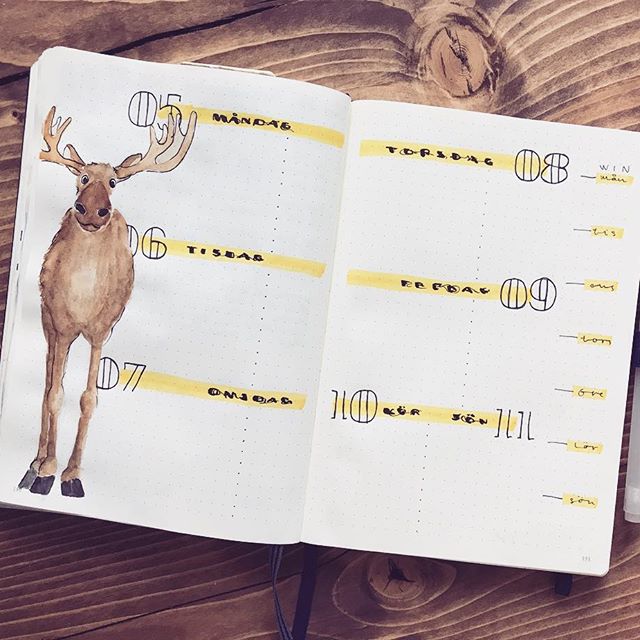 05 MÅNDAG
06 TISDAG
07 ONSDAG
TORSDAG 08
FREDAG 09
10 LÖR SÖN 11
WIN
mån
tis
ons
tors
fre
lör
sön